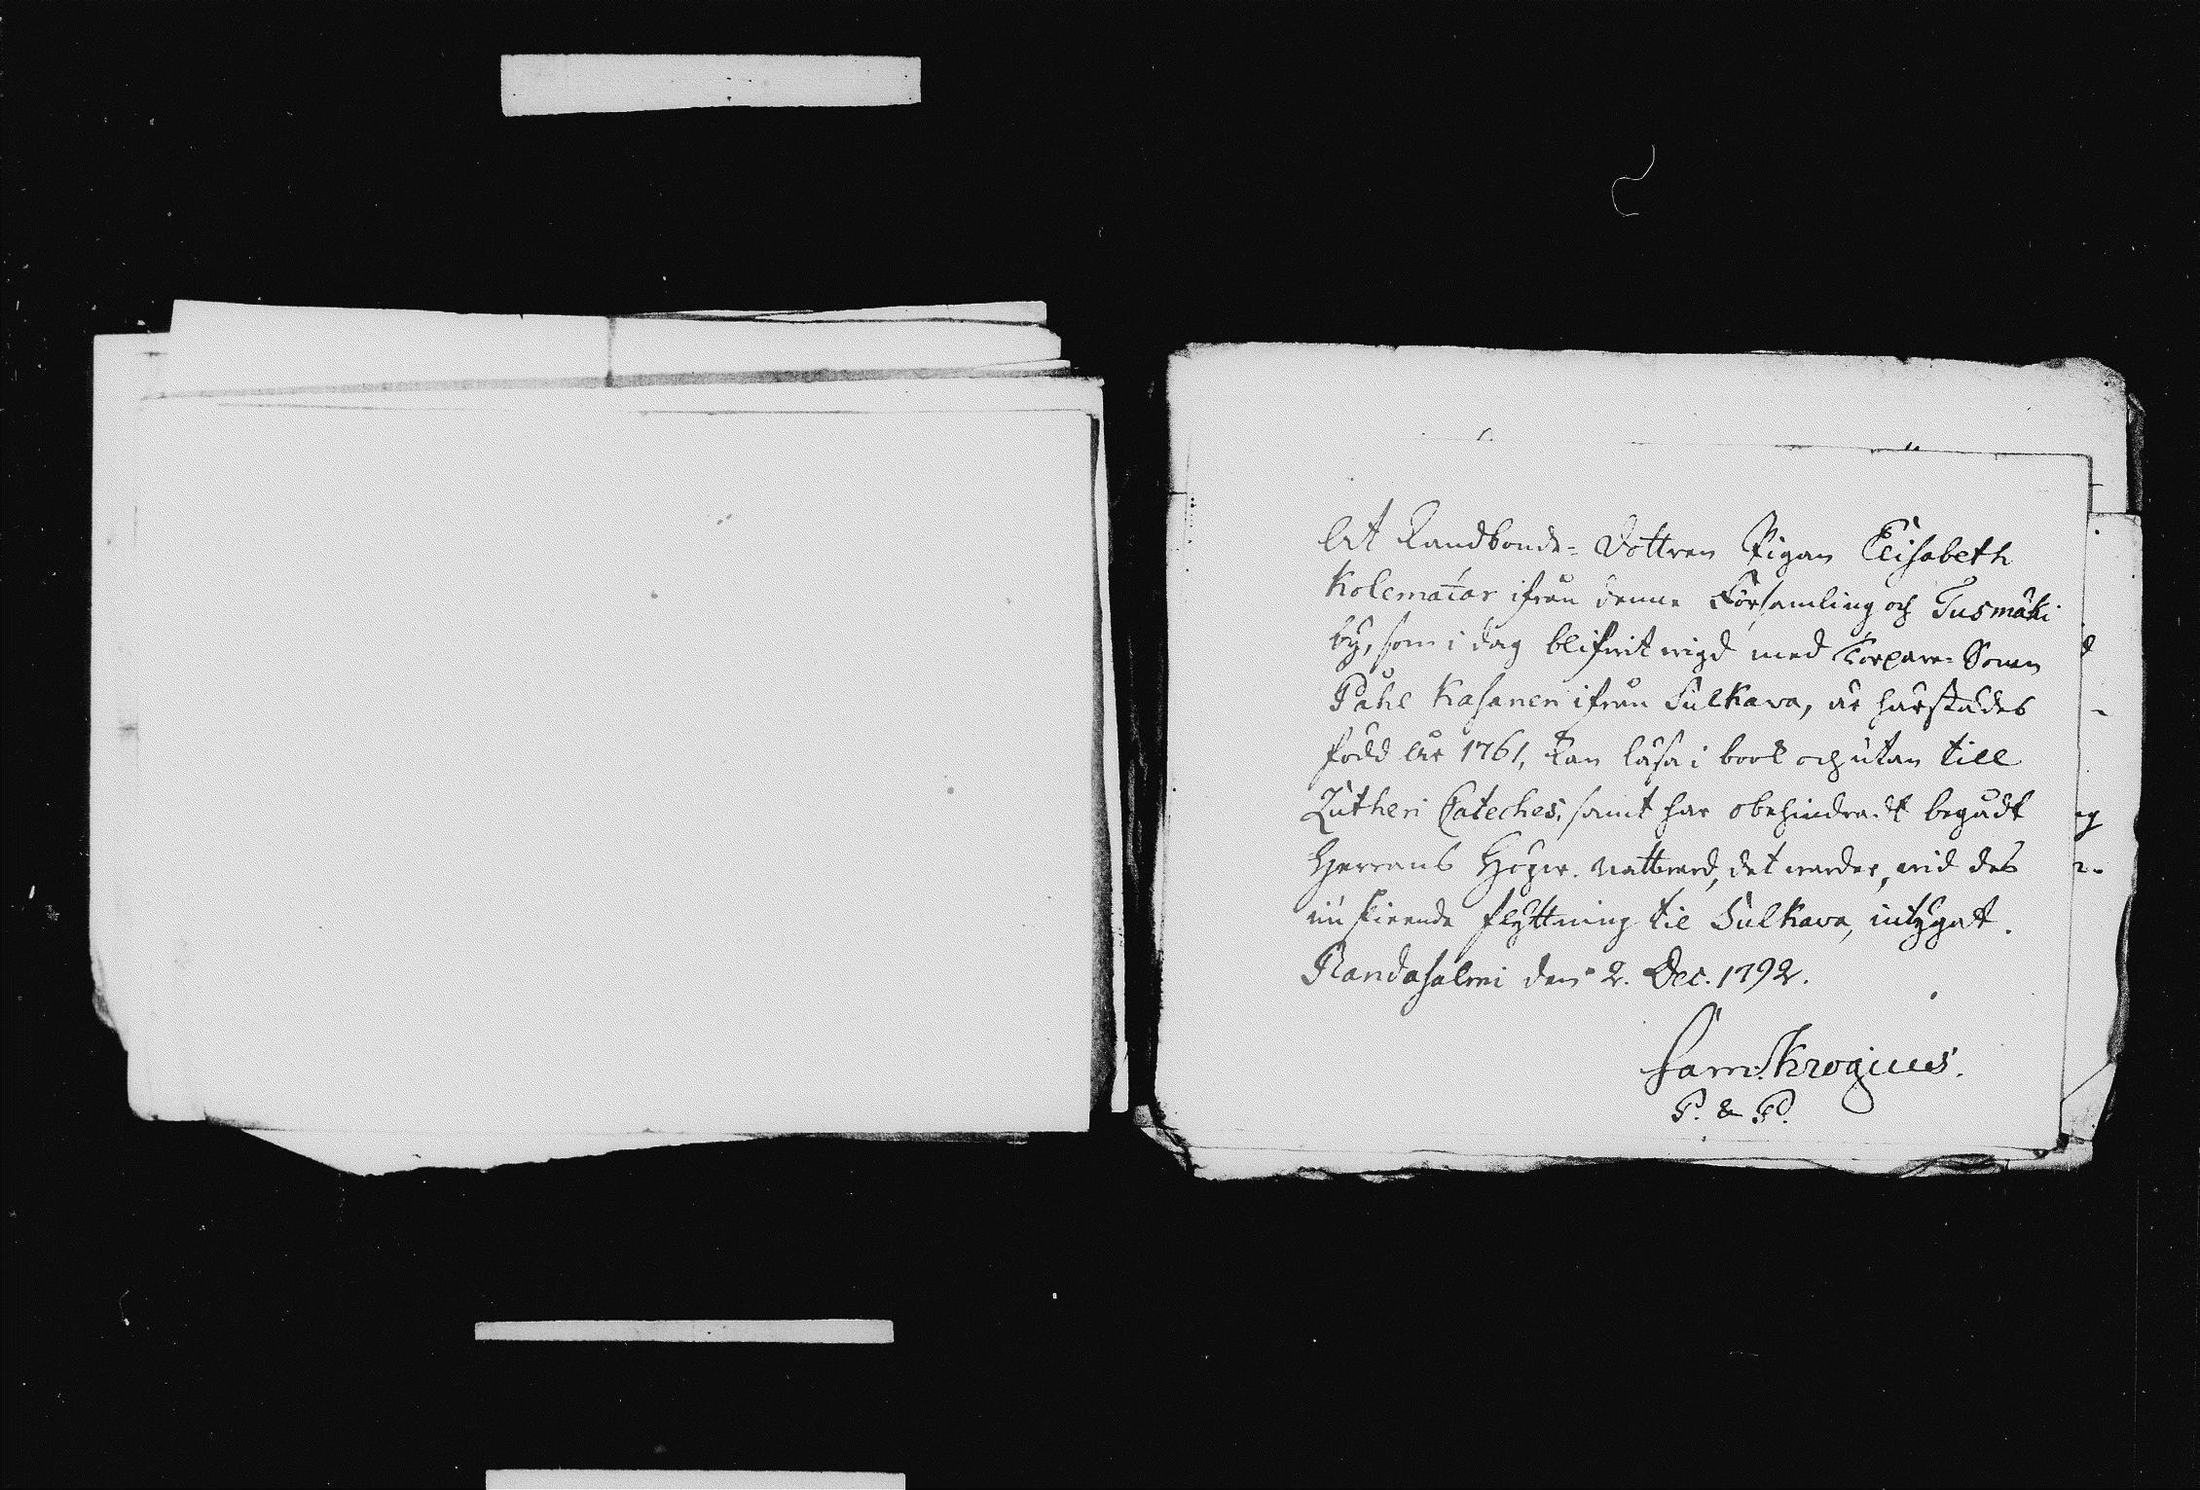 At Landbonde-Dottren Pigan Elisabeth
Kolematar ifrån denne Församling och Tusmäki
by, som i dag blifvit vigd med Torpare-Sonen
Påhl Kasanen ifrån Sulkava, är härstädes
född år 1761, kan läsa i book och utan till
Lutheri Cateches. samt har obehindradt begådt
Herrans Högw. Nattvard, det warder, wid des
flyttning til Sulkava, intygat.
Randasalmi den 2. Dec. 1792.
Sam. Krogius.
P. & P.